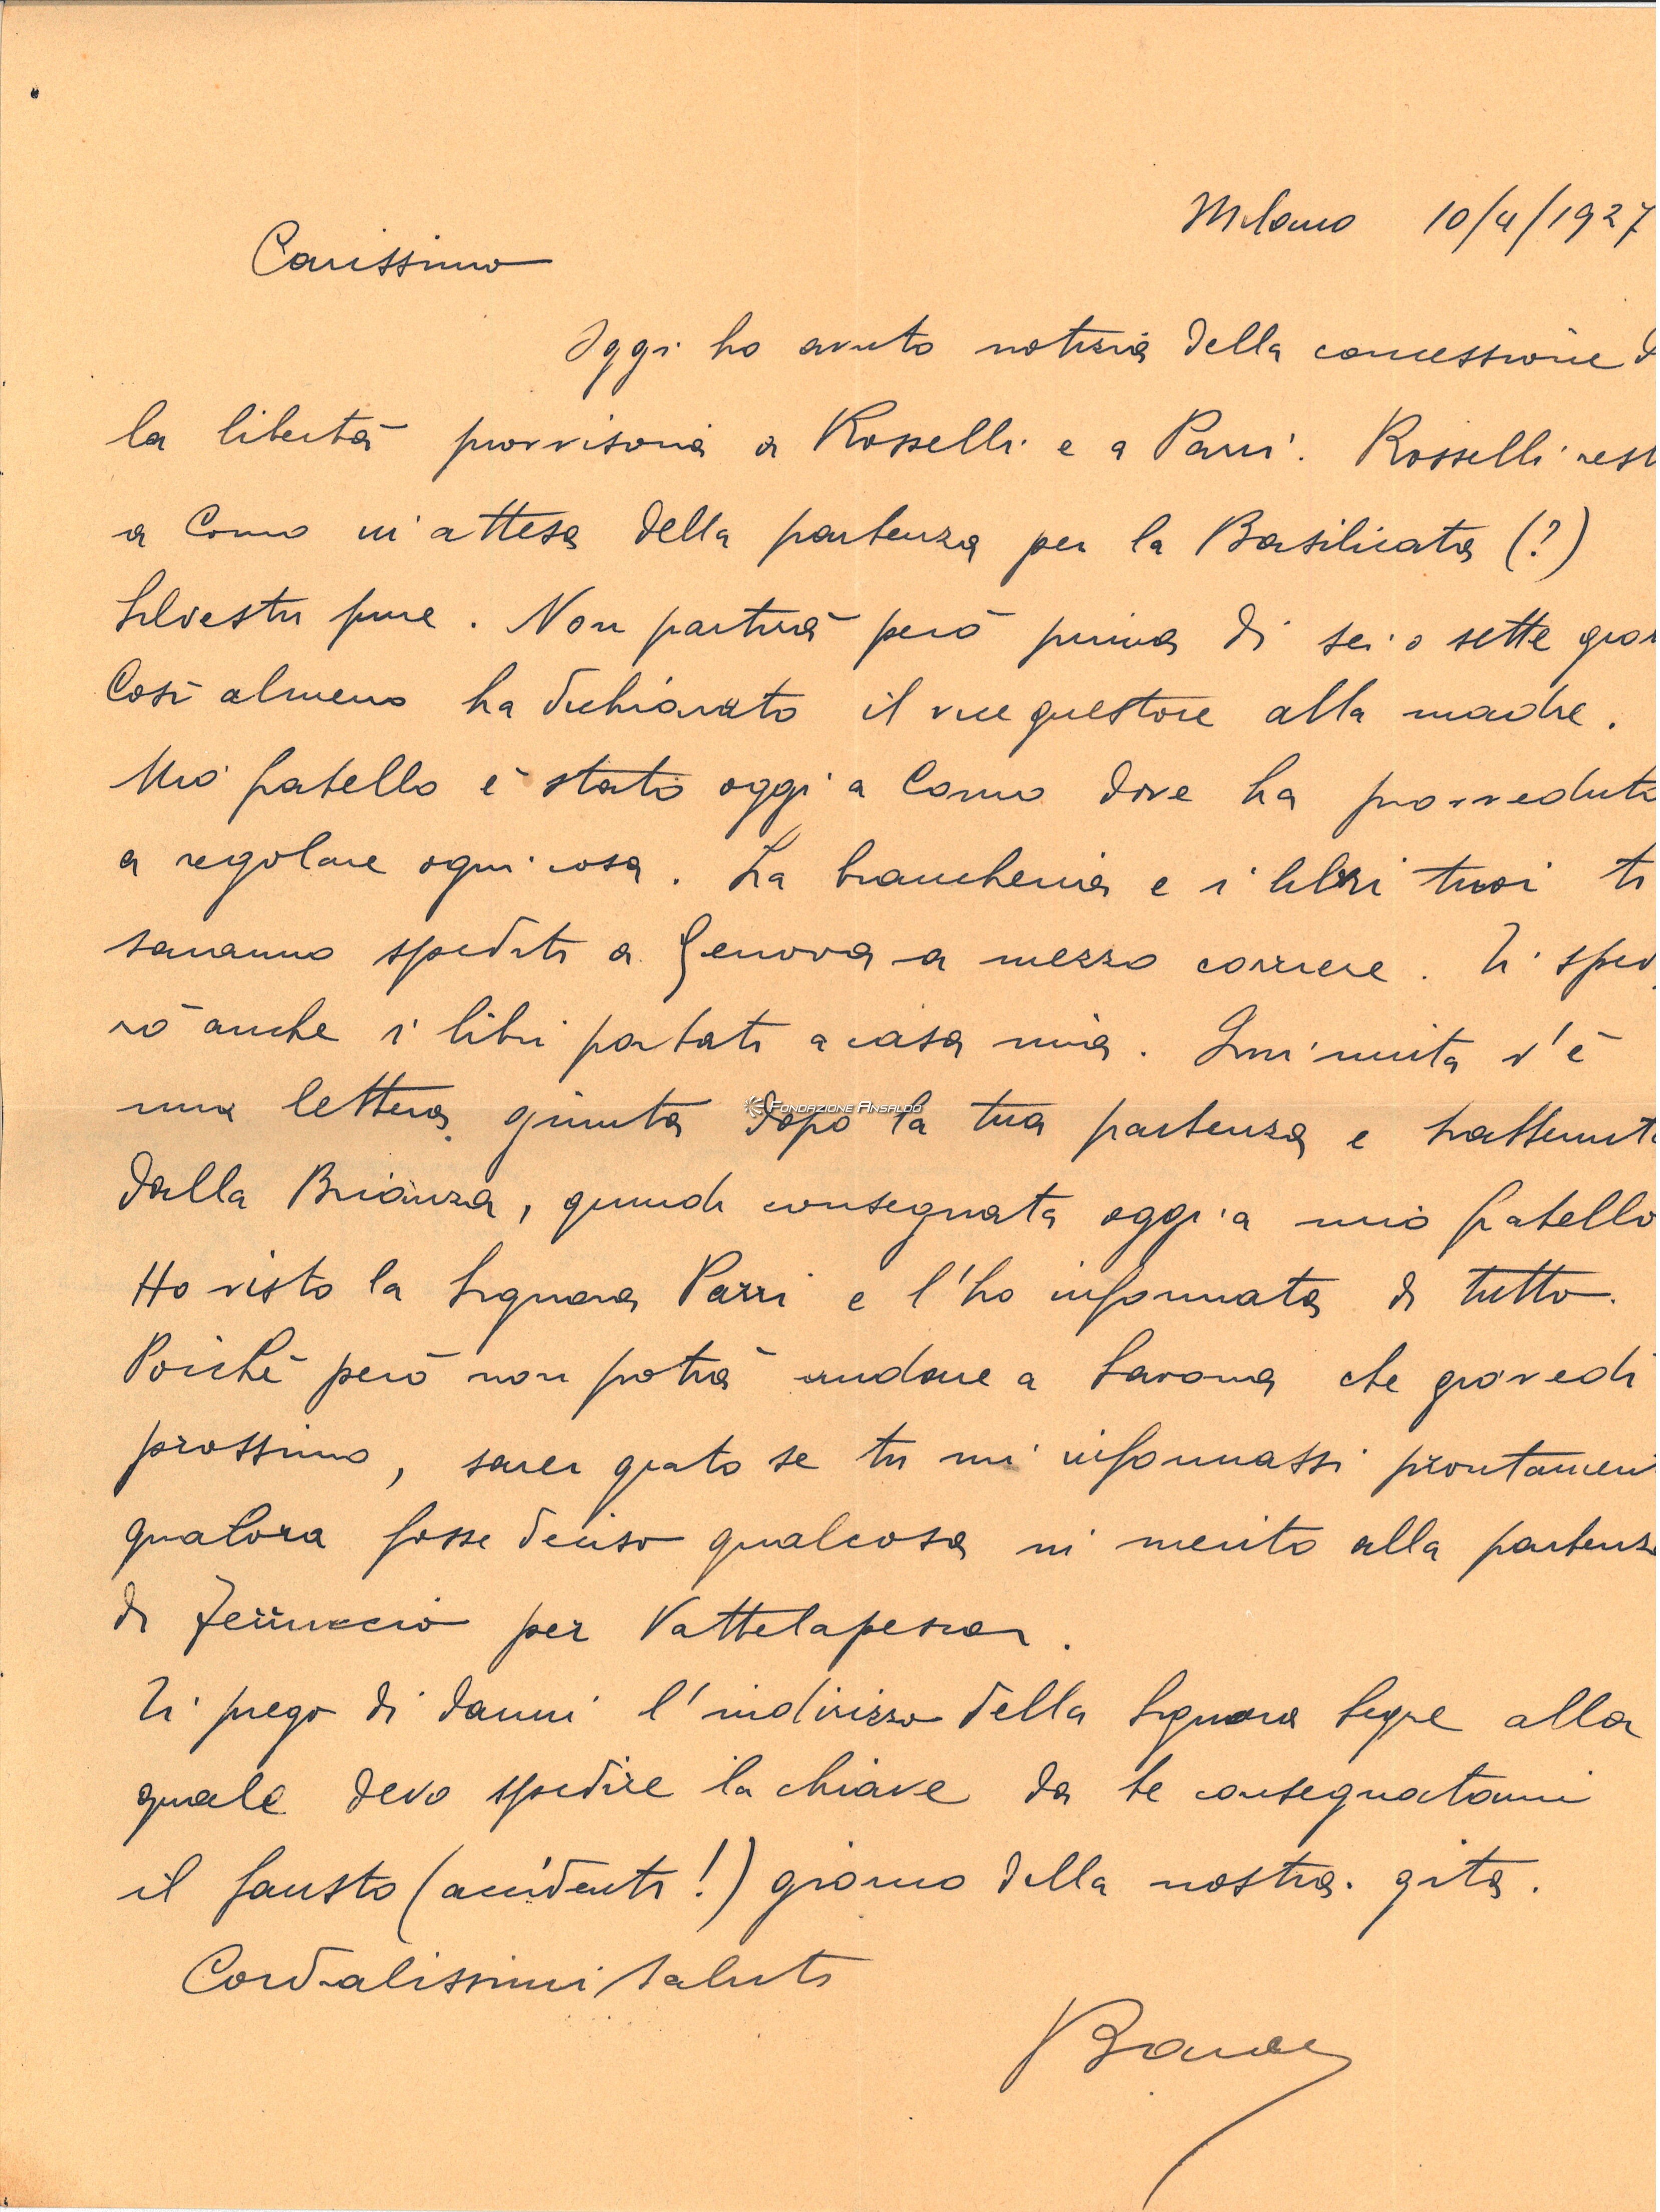 Milano 10/4/1927
Carissimo
Oggi ho avuto notizia della concessione d
la libertà provvisoria a Rosselli e a Parri. Rosselli rest
a Como in attesa della partenza per la Basilicata (?)
Silvestri pure. Non partirà però prima di sei o sette gior
Così almeno ha dichiarato il vice questore alla madre.
Mio fratello è stato oggi a Como dove ha provveduto
a regolare ogni cosa. La biancheria e i libri tuoi ti
saranno spediti a Genova a mezzo corriere. Ti spedi
rò anche i libri portati a casa mia. Qui unita v'è
una lettera giunta dopo la tua partenza e trattenuta
dalla Brianza, quindi consegnata oggi a mio fratello
Ho visto la Signora Parri e l'ho informata di tutto.
Poichè però non potrà andare a Savona che giovedì
prossimo, sarei grato se tu mi informassi prontamen
qualora fosse deciso qualcosa in merito alla partenza
di Ferruccio per Vattelapesca.
Ti prego di darmi l'indirizzo della Signora Segre alla
quale devo spedire la chiave da te consegnatami
il fausto (accidenti!) giorno della nostra gita.
Cordialissimi saluti
Fondazione Ansaldo